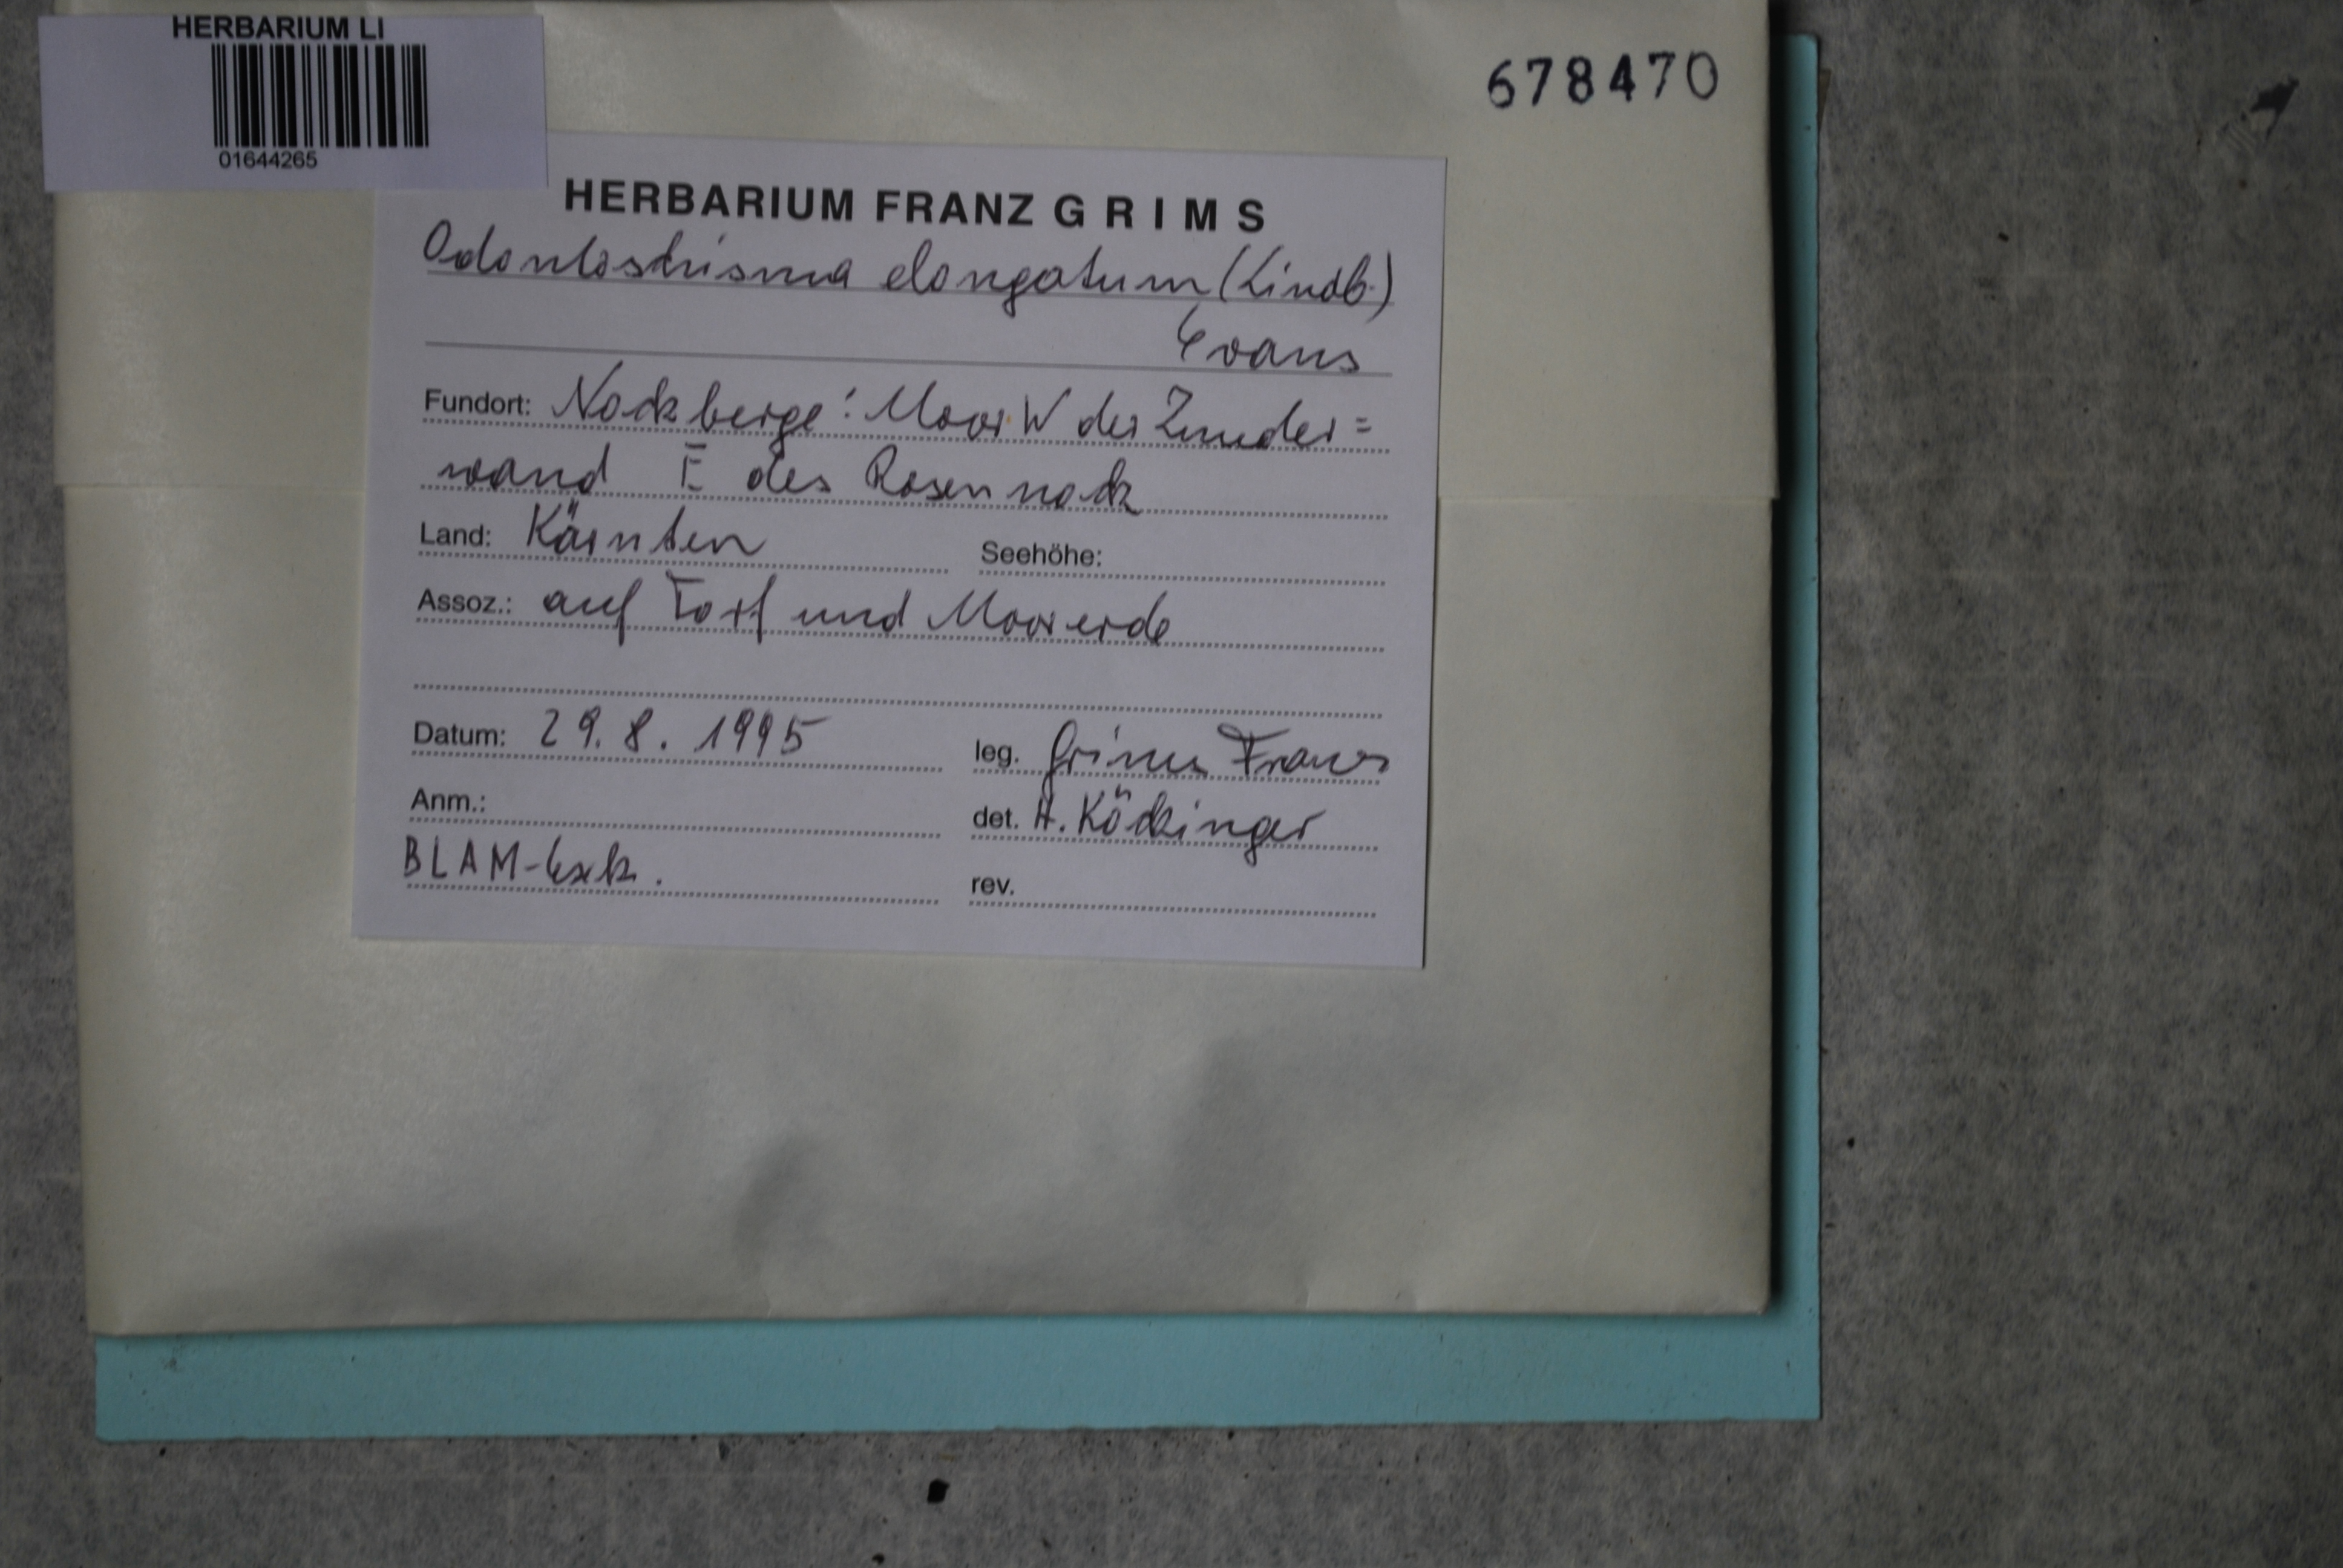 HERBARIUM LI
01644265
678470
HERBARIUM FRANZ GRIMS
Odontoschisma elongatum (Lindb.)
Evans
Fundort: Nockberge: Moor W der Zunder=
wand E des Rosennock
Land: Kärnten Seehöhe:
Assoz.: auf Torf und Moorerde
Datum: 29.8.1995 leg. Grims Franz
Anm.: det. H. Köckinger
BLAM-Exk. rev.